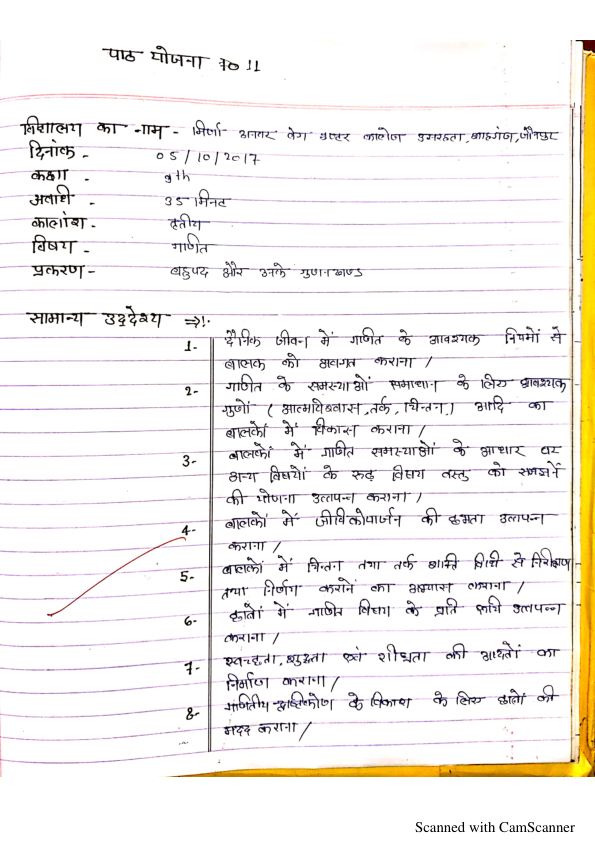 पाठ योजना न० 11
विद्यालय का नाम - मिर्जा अनवर बेग इण्टर कालेज, शाहगंज, जौनपुर
दिनांक - 05/10/2017
कक्षा - 9th
अवधि - 35 मिनट
कालांश - तृतीय
विषय - गणित
प्रकरण - बहुपद और उनके गुणनखण्ड
सामान्य उद्देश्य ⇒!-
1- दैनिक जीवन में गणित के आवश्यक नियमों से
बालक को अवगत कराना /
2- गणित के समस्याओं समाधान के लिए आवश्यक
गुणों ( आत्मविश्वास, तर्क, चिन्तन,) आदि का
बालकों में विकास कराना /
3- बालकों में गणित समस्याओं के आधार पर
अन्य विषयों के रुढ़ विषय वस्तु को समझनें
की योजना उत्पन्न कराना /
4- बालकों में जीविकोपार्जन की क्षमता उत्पन्न
कराना /
5- बालकों में चिन्तन तथा तर्क शक्ति विधी से निरीक्षण
तथा निर्णय करानें का अभ्यास कराना /
6- छात्रों में गणित विषय के प्रति रूचि उत्पन्न
कराना /
7- स्वच्छता, शुद्धता एवं शीघ्रता की आदतों का
निर्माण कराना /
8- गणितीय दृष्टिकोण के विकाश के लिए छात्रों की
मदद कराना /
Scanned with CamScanner